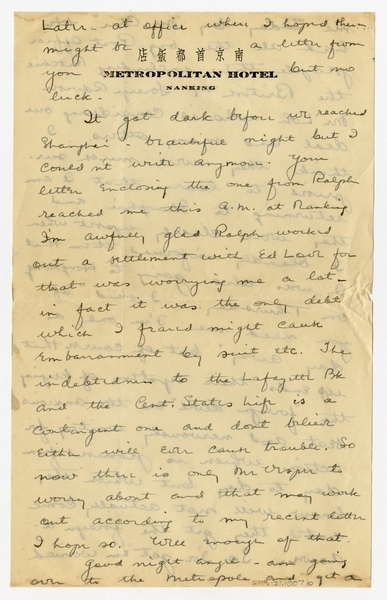 Later - at office when I hoped there
might be a letter from
店飯都首京南
you but no
METROPOLITAN HOTEL
NANKING
luck.
It got dark before we reached
Shanghai - beautiful night but I
couldn't write anymore. Your
letter enclosing the one from Ralph
reached me this A.M. at Nanking
I'm awfully glad Ralph worked
out a settlement with Ed Love for
that was worrying me a lot -
in fact it was the only debt
which I feared might cause
embarrassment by suit etc. The
indebtedness to the Lafayette Bk
and the Cent. States Life is a
contingent one and dont believe
either will ever cause trouble. So
now there is only Mr to
worry about and that may work
out according to my recent letter
I hope so. Well enough of that.
Good night angel - am going
over to the Metropole and get a